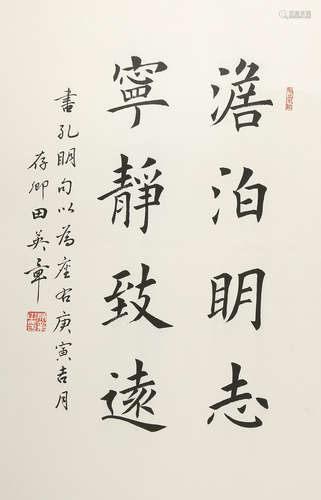 澹泊明志
寧靜致遠
書孔明句以為座右庚寅吉月
存卿田英章